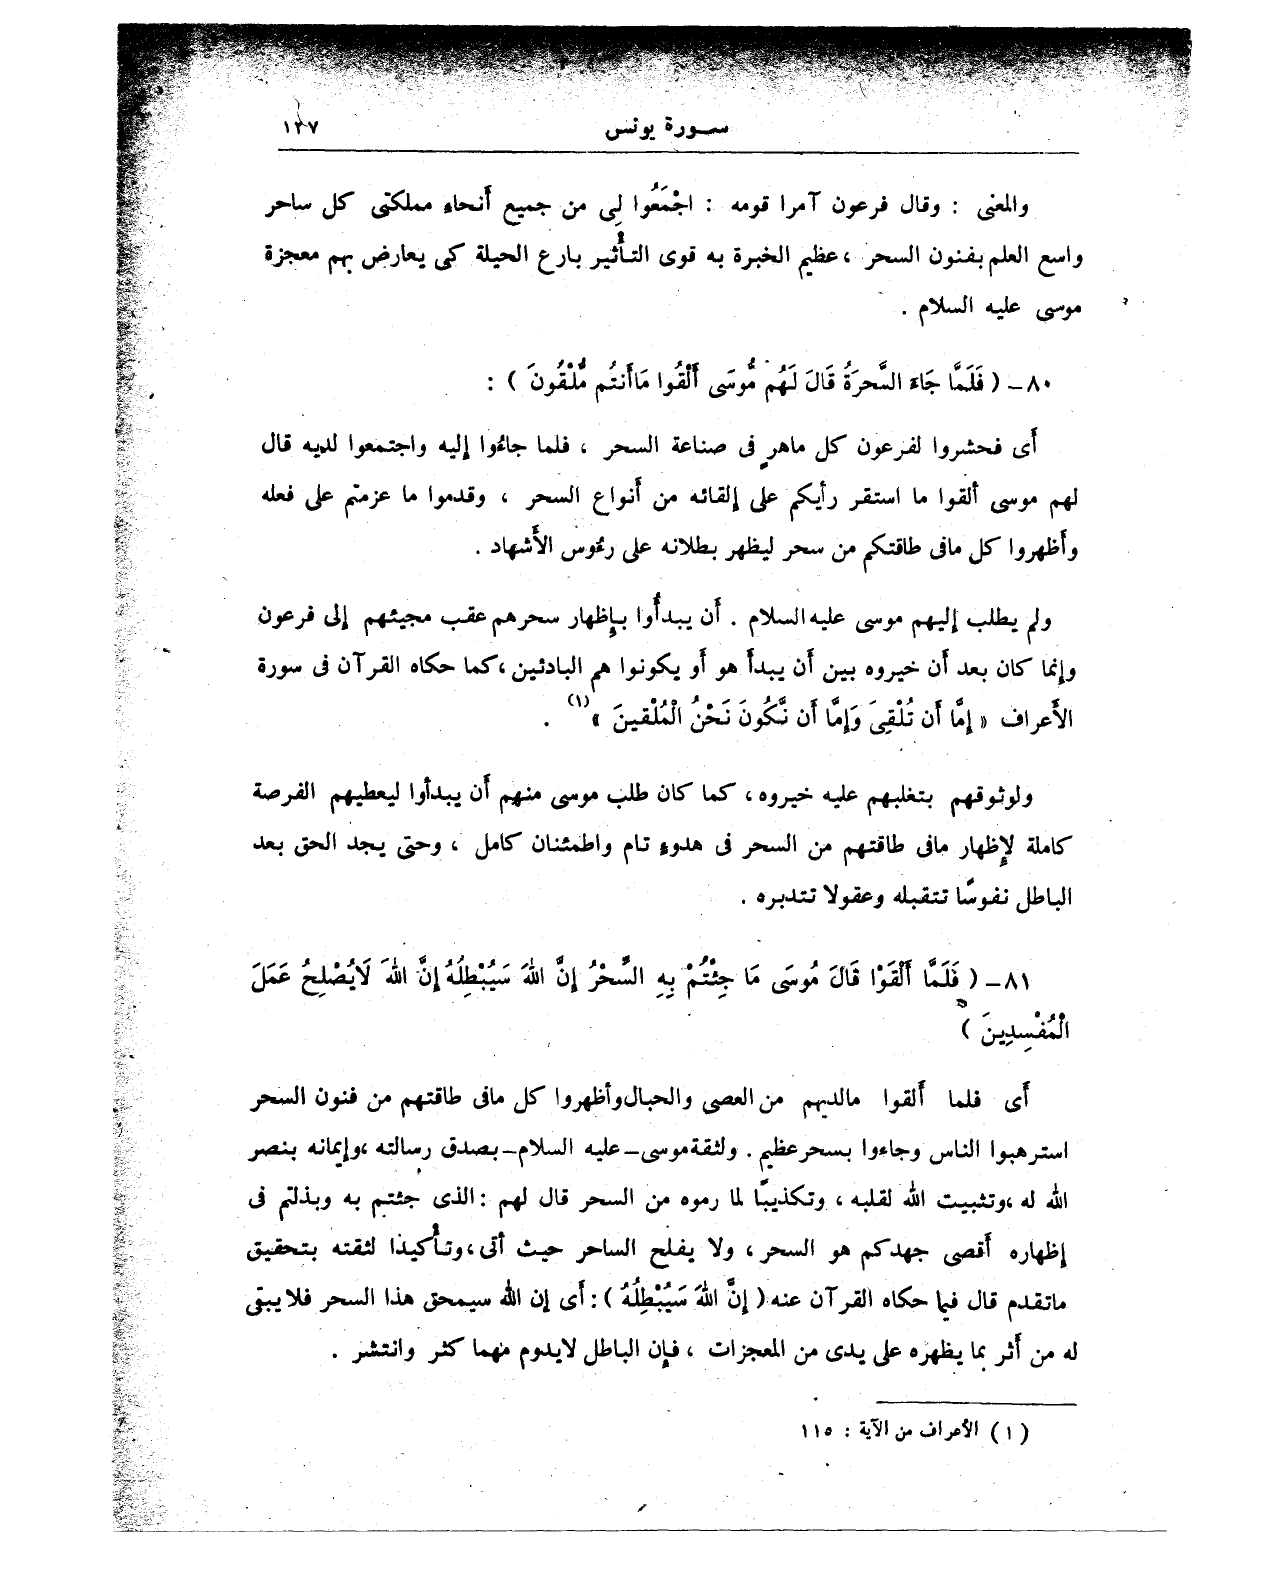 سورة يونس ١٣٧
والمعنى : وقال فرعون آمرا قومه : اجْمَعُوا لِى من جميع أَنحاءِ مملكتى كل ساحر
واسع العلم بفنون السحر ، عظيم الخبرة به قوى التأْثير بارع الحيلة كى يعارض بهم معجزة
موسى عليه السلام .
٨٠ـ ( فَلَمَّا جَاءَ السَّحرَةُ قَالَ لَهُم مُّوسَى أَلْقُوا مَاأَنتُم مُّلْقُونَ ) :
أَى فحشروا لفرعون كل ماهر فى صناعة السحر ، فلما جاءُوا إليه واجتمعوا لديه قال
لهم موسى ألقوا ما استقر رأيكم على إلقائه من أَنواع السحر ، وقدموا ما عزمتم على فعله
وأَظهروا كل مافى طاقتكم من سحر ليظهر بطلانه على رءُوس الأَشهاد .
ولم يطلب إليهم موسى عليه السلام . أَن يبدأُوا بإِظهار سحرهم عقب مجيئهم إلى فرعون
وإنما كان بعد أَن خيروه بين أَن يبدأَ هو أَو يكونوا هم البادئين ، كما حكاه القرآن فى سورة
الأَعراف « إِمَّا أَن تُلْقِىَ وَإِمَّا أَن نَّكُونَ نَحْنُ الْمُلْقينَ » (١) .
ولوثوقهم بتغلبهم عليه خيروه ، كما كان طلب موسى منهم أَن يبدأوا ليعطيهم الفرصة
كاملة لإِظهار مافى طاقتهم من السحر فى هدوءٍ تام واطمئنان كامل ، وحتى يجد الحق بعد
الباطل نفوسًا تتقبله وعقولا تتدبره .
٨١ـ ( فَلَمَّا أَلْقَوْا قَالَ مُوسَى مَا جِئْتُمْ بِهِ السِّحْرُ إِنَّ اللهَ سَيُبْطِلُهُ إِنَّ اللهَ لَايُصْلِحُ عَمَلَ
الْمُفْسِدِينَ )
أَى فلما أَلقوا مالديهم من العصى والحبال وأَظهروا كل مافى طاقتهم من فنون السحر
استرهبوا الناس وجاءوا بسحر عظيم . ولثقة موسى ـ عليه السلام ـ بصدق رسالته ، وإيمانه بنصر
الله له ، وتثبيت الله لقلبه ، وتكذيبًا لما رموه من السحر قال لهم : الذى جئتم به وبذلتم فى
إظهاره أَقصى جهدكم هو السحر ، ولا يفلح الساحر حيث أتى ، وتأْكيدًا لثقته بتحقيق
ماتقدم قال فيما حكاه القرآن عنه ( إِنَّ اللهَ سَيُبْطِلُهُ ) : أَى إن الله سيمحق هذا السحر فلا يبقى
له من أَثر بما يظهره على يدى من المعجزات ، فإن الباطل لايدوم مهما كثر وانتشر .
(١) الأَعراف من الآية : ١١٥